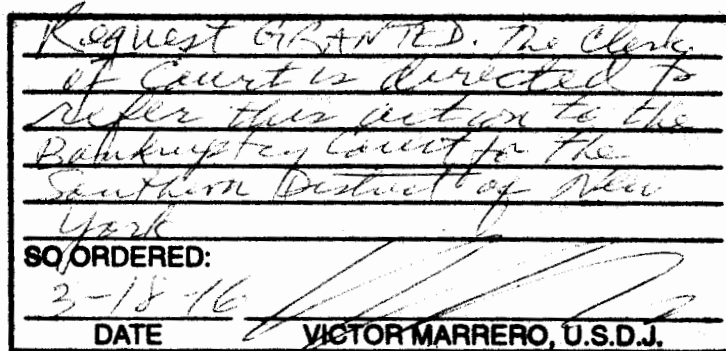 Request GRANTED. The Clerk
of Court is directed to
refer this action to the
Bankruptcy Court for the
Southern District of New
York
SO ORDERED:
3-18-16
DATE VICTOR MARRERO, U.S.D.J.